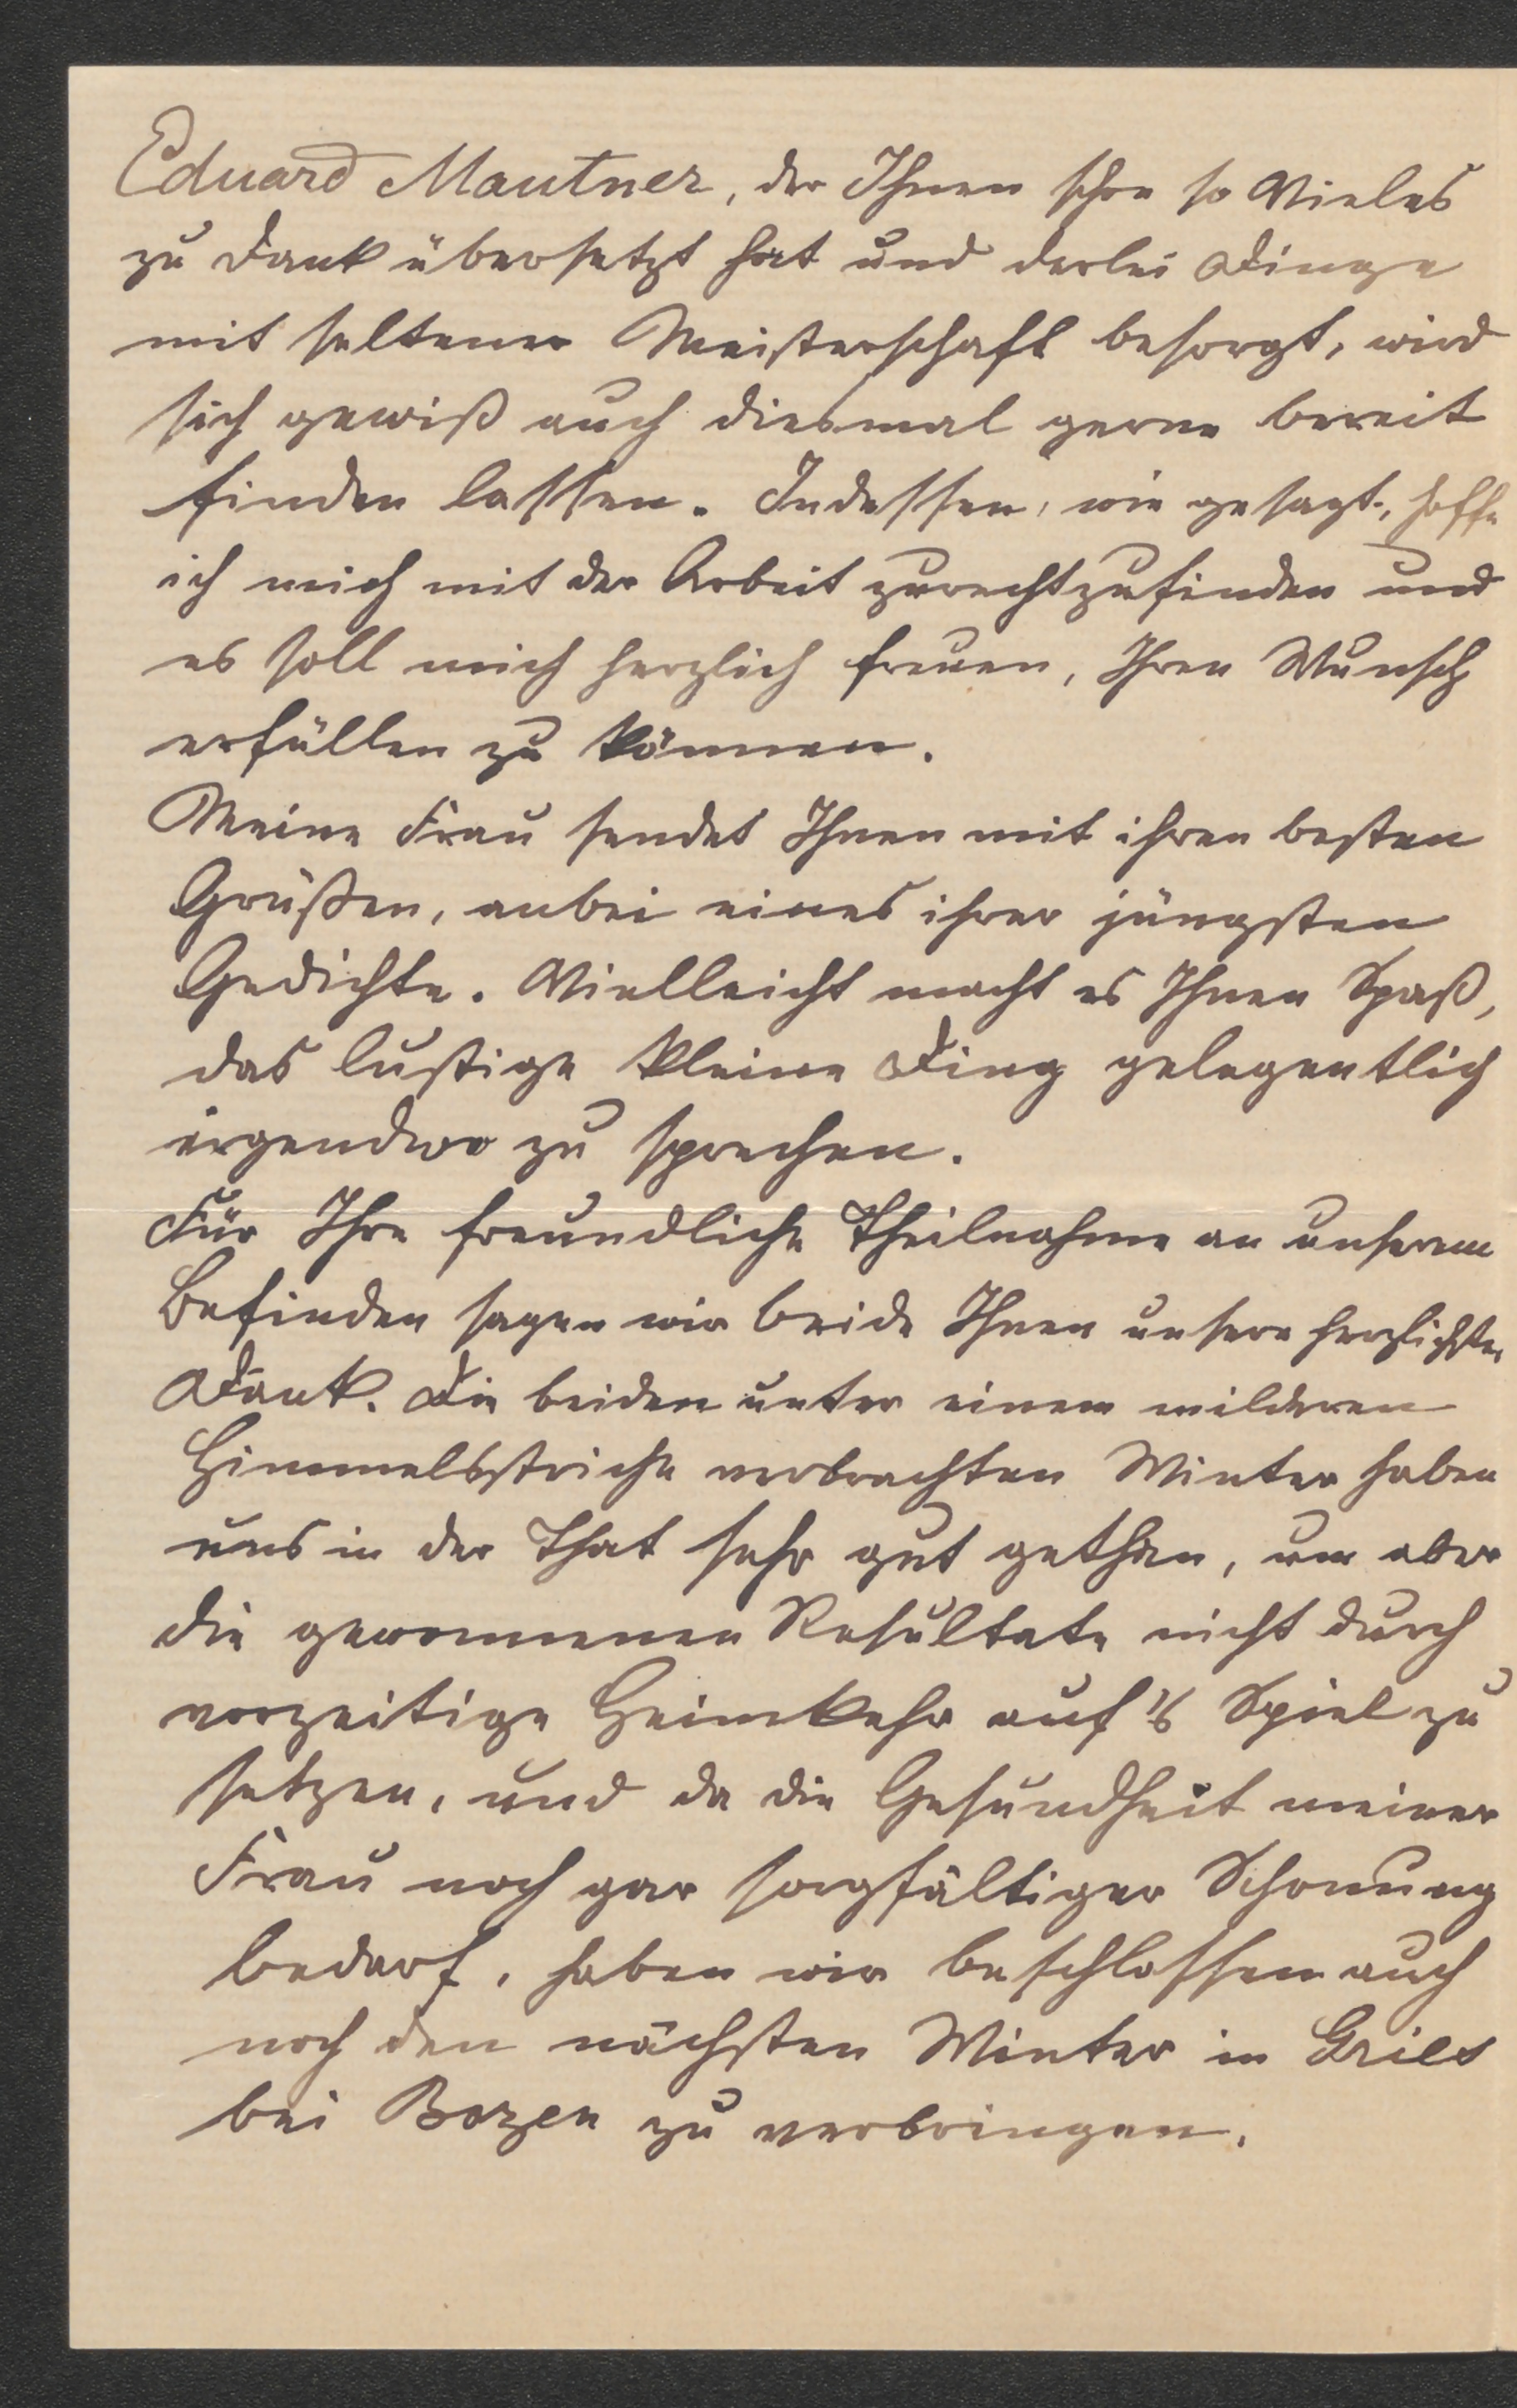 Eduard Mautner, der Ihnen schon so Vieles
zu Dank übersetzt hat und derlei Dinge
mit seltener Meisterschaft besorgt, wird
sich gewiß auch diesmal gerne bereit
finden lassen. Indessen, wie gesagt, hoffe
ich mich mit der Arbeit zurechtzufinden und
es soll mich herzlich freuen, Ihren Wunsch
erfüllen zu können.
Meine Frau sendet Ihnen mit ihren besten
Grüßen, anbei eines ihrer jüngsten
Gedichte. Vielleicht macht es Ihnen Spaß,
das lustige kleine Ding gelegentlich
irgendwo zu sprechen.
Für Ihre freundliche Theilnahme an unserem
Befinden sagen wir beide Ihnen unsern herzlichsten
Dank. Die beiden unter einem milderen
Himmelsstriche verbrachten Winter haben
uns in der That sehr gut gethan, um aber
die gewonnenen Resultate nicht durch
vorzeitige Heimkehr auf's Spiel zu
setzen, und da die Gesundheit meiner
Frau noch gar sorgfältiger Schonung
bedarf, haben wir beschlossen auch
noch den nächsten Winter in Gries
bei Bozen zu verbringen.